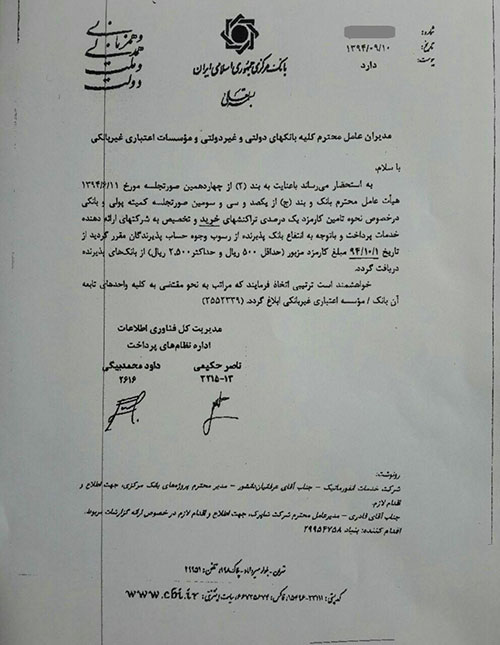 شماره:
تاریخ: ۱۳۹۴/۰۹/۱۰
پیوست: دارد
دولت و ملت همدلی و همزبانی
بانک مرکزی جمهوری اسلامی ایران
بسمه تعالی
مدیران عامل محترم کلیه بانکهای دولتی و غیردولتی و مؤسسات اعتباری غیربانکی
با سلام،
به استحضار می‌رساند باعنایت به بند (۲) از چهاردهمین صورتجلسه مورخ ۱۳۹۴/۶/۱۱
هیأت عامل محترم بانک و بند (ج) از یکصد و سی و سومین صورتجلسه کمیته پولی و بانکی
درخصوص نحوه تامین کارمزد یک درصدی تراکنشهای خرید و تخصیص به شرکتهای ارائه دهنده
خدمات پرداخت و باتوجه به انتفاع بانک پذیرنده از رسوب وجوه حساب پذیرندگان مقرر گردید از
تاریخ ۹۴/۱۰/۱ مبلغ کارمزد مزبور (حداقل ۵۰۰ ریال و حداکثر ۲,۵۰۰ ریال) از بانک‌های پذیرنده
دریافت گردد.
خواهشمند است ترتیبی اتخاذ فرمایند که مراتب به نحو مقتضی به کلیه واحدهای تابعه
آن بانک / مؤسسه اعتباری غیربانکی ابلاغ گردد. (۲۵۵۲۳۳۹)
مدیریت کل فناوری اطلاعات
اداره نظام‌های پرداخت
ناصر حکیمی داود محمدبیگی
۳۲۱۵-۱۳ ۲۶۱۶
رونوشت:
شرکت خدمات انفورماتیک – جناب آقای عرفانیان دانشور – مدیر محترم پروژه‌های بانک مرکزی، جهت اطلاع و
اقدام لازم.
جناب آقای قادری – مدیرعامل محترم شرکت شاپرک، جهت اطلاع و اقدام لازم در خصوص ارائه گزارشات مربوط.
اقدام کننده: بنیاد ۲۹۹۵۴۷۵۸
تهران - بلوار میرداماد - پلاک ۱۹۸ تلفن: ۲۹۹۵۱
کدپستی: ۲۳۱۱۱-۱۵۴۹۶ فاکس: ۶۶۷۲۵۶۷۴ سایت اینترنتی: www.cbi.ir